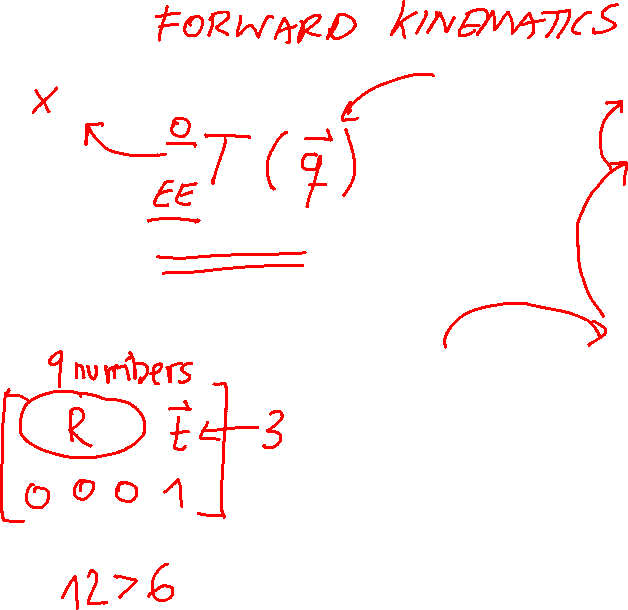 FORWARD KINEMATICS
X
O T ( q⃗ )
EE
9 numbers
R t⃗ 3
0 0 0 1
12 > 6